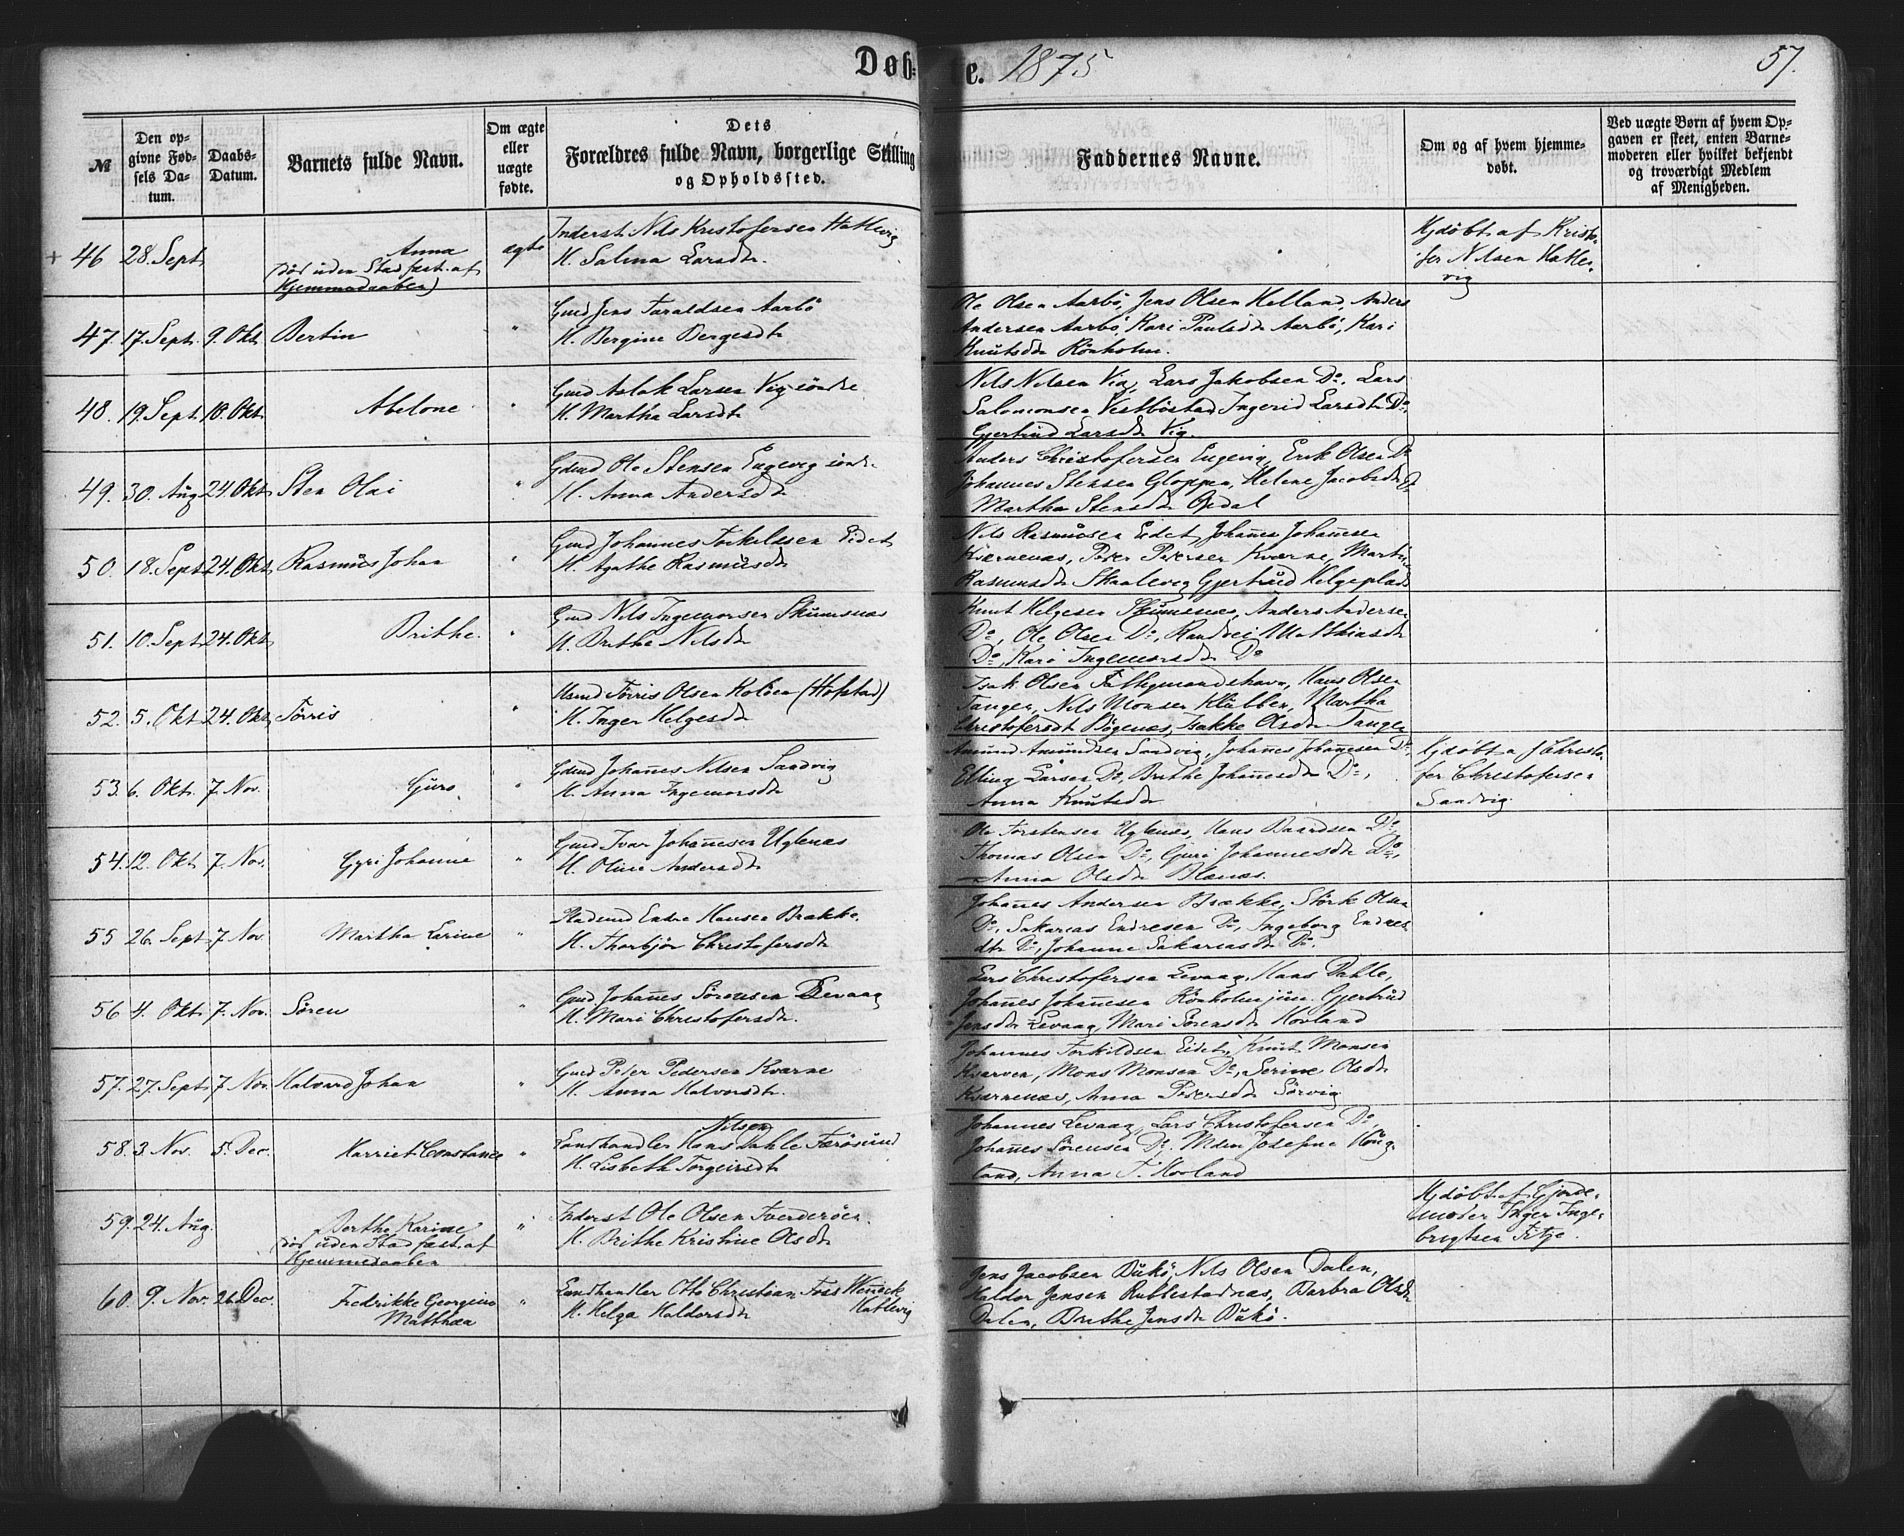 Døb- e. 1875 57.
№
Den opgivne Fødsels Datum.
Daabs-Datum.
Barnets fulde Navn.
Om ægte eller uægte fødte.
Dets Forældres fulde Navn, borgerlige Stilling og Opholdssted.
Faddernes Navne.
Om og af hvem hjemmedøbt.
Ved uægte Børn af hvem Opgaven er skeet, enten Barnemoderen eller hvilket bekjendt og troværdigt Medlem af Menigheden.
+ 46 28. Sept Anna
(død uden Stadfæst. af
Hjemmedaaben)
ægte
Inderst Nils Kristofersen Hatlevig
H. Salina Larsdtr
Hjdøbt af Kristo-
fer Nilsen Hatle-
vig
47. 17. Sept. 9. Okt. Bertin "
Gmd Jens Taraldsen Aarbø
H. Bergine Bergesdtr
Ole Olsen Aarbø, Jens Olsen Helland, Anders
Andersen Aarbø, Kari Paulsdtr Aarbø, Kari
Knutsdtr Rönholm.
48. 19. Sept. 10. Okt. Abelone "
Gmd Aslak Larsen Vig söndre
H. Martha Larsdtr
Nils Nilsen Vig, Lars Jakobsen Do, Lars
Salomonsen Vestbøstad, Ingerid Larsdtr Do,
Gjertrud Larsdtr Vig.
49. 30. Aug 24. Okt. Sten Olai "
Gdmd Ole Stensen Engevig söndr.
H. Anna Andersdtr
Anders Christofersen Engevig, Erik Olsen Do
Johannes Stensen Gloppen, Helene Jacobsdtr Do
Martha Stensdtr Opdal
50. 18. Sept 24. Okt. Rasmus Johan "
Gmd Johannes Torkildsen Eidet
H. Agathe Rasmusdtr
Nils Rasmusen Eidet, Johanes Johanesen
Kværnenæs, Peder Pedersen Kværne, Martha
Rasmusdtr Skaalevig, Gjertrud Helgeplads
51. 10. Sept 24. Okt Brithe. "
Gmd Nils Ingemorsen Skumsnæs
H. Brithe Nilsdtr
Knut Helgesen Skumsnæs, Anders Andersen
Do, Ole Olsen Do, Randvei Matthiasdtr
Do, Kari Ingemorsdtr Do
52. 5. Okt 24. Okt. Törris "
Husmd Törris Olsen Kolöen (Hofstad)
H. Inger Helgesdtr
Isak Olsen Folkymandshavn, Hans Olsen
Tangen, Nils Monsen Klubben, Martha
Christofersdt Bögenæs, Olsdtr Tangen
53. 6. Okt. 7. Nov. Guro "
Gdmd Johanes Nilsen Sandvig
H. Anna Ingemorsdtr
Amund Amundsen Sandvig, Johanes Johanesen Do,
Elling Larsen Do, Brithe Johanesdtr Do,
Anna Knutsdtr
Hjdøbt af Christo-
fer Christofersen
Sandvig.
54. 12. Okt 7. Nov. Gyri Johanne "
Gmd Ivar Johanesen Uglenæs
H. Oline Andersdtr
Ole Torstensen Uglenæs, Hans Baardsen Do,
Thomas Olsen Do, Guri Johannesdtr Do,
Anna Olsdtr Blænæs.
55 26. Sept 7. Nov. Martha Larine "
Pladsmd Endre Hansen Brække.
H. Thorbjör Christofersdtr
Johannes Andersen Brække, Störk Olsen
Do, Sakarias Endresen Do, Ingeborg Endres-
dtr Do, Johanne Sakariasdtr Do.
56 4. Okt 7. Nov. Sören "
Gmd. Johanes Sörensen Levaag
H. Mari Christofersdtr.
Lars Christofersen Levaag, Hans Dahle,
Johanes Johanesen Rönholm jun. Gjertrud
Jensdtr Levaag, Mari Sörensdtr Hovland
57. 27. Sept 7. Nov. Halvard Johan "
Gmd Peder Pedersen Kværne
H. Anna Halvorsdtr.
Johannes Torkildsen Eidet, Knut Monsen
Kvarven, Mons Monsen Do, Serine Olsdtr
Kværnenæs, Anna Pedersdtr Sörvig
58. 3. Nov. 5. Dec. Harriet Constance "
Nilsen
Landhandler Hans Dahle Færösund
H. Lisbeth Torgeirsdtr
Johannes Levaag, Lars Christofersen Do,
Johanes Sörensen Do, Mdm Josefine Houg-
land, Anna T. Hovland
59. 24. Aug. Berthe Karine
død uden Stadfæst. af
Hjemmedaaben
"
Inderst Ole Olsen Tverderöen.
H. Brithe Kristine Olsdtr
Hjdøbt af Gjorde-
moder Inger Inge-
brigtsen Fitje.
60. 9. Nov. 26. Dec. Fredrikke Georgine
Matthea
"
Landhandler Otto Christian Foss Wenneck
Hatlevig
H. Helga Haldorsdtr
Jens Jacobsen Bukö, Nils Olsen Dalen,
Haldor Jensen Rublestadnæs, Barbra Olsdtr
Dalen, Brithe Jensdtr Bukö.